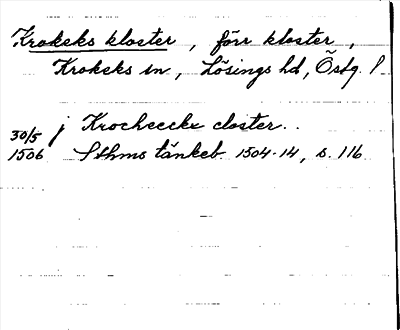 Krokeks kloster, förr kloster,
Krokeks sn, Lösings hd, Östg. l
30/5 j Krocheecke closter..
1506 Sthms tänkeb. 1504-14, s. 116